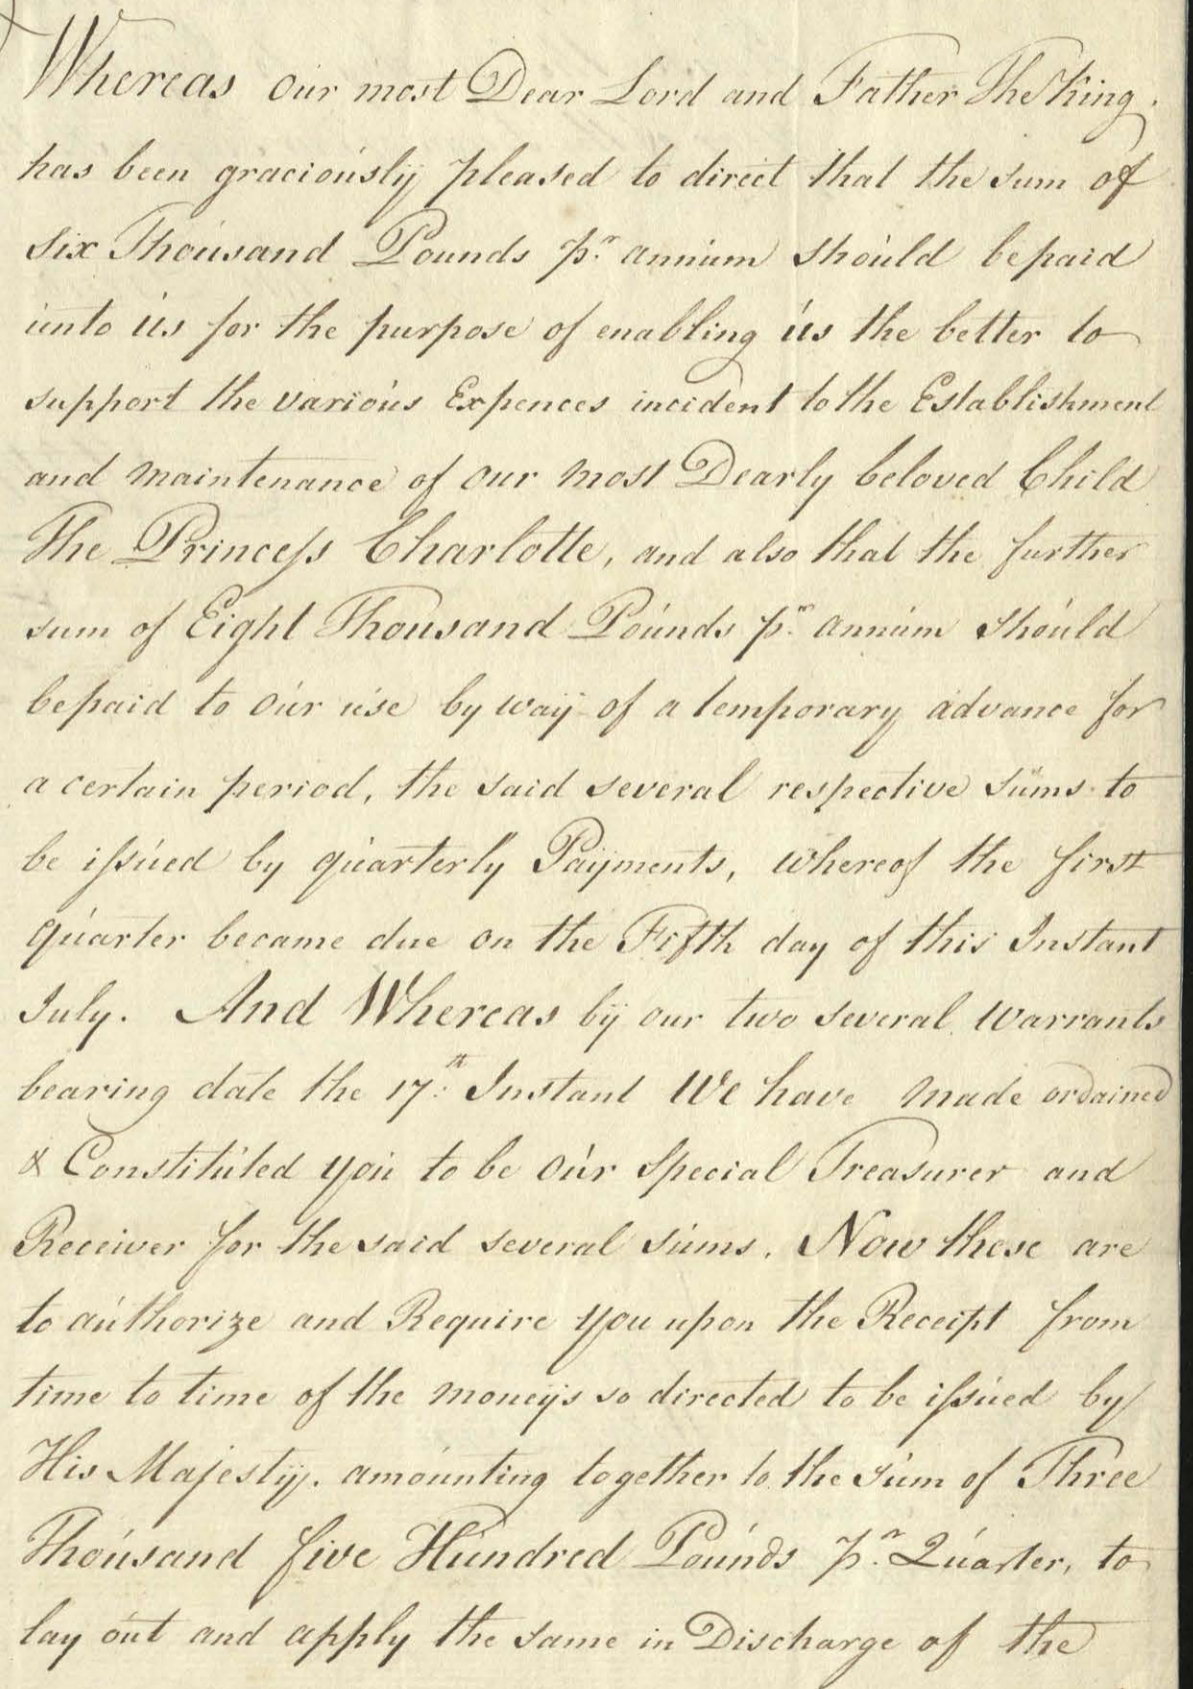 Whereas our most Dear Lord and Father The King
has been graciously pleased to direct that the sum of
Six Thousand Pounds pr. annum should be paid
unto us for the purpose of enabling us the better to
support the various Expences incident to the Establishment
and maintenance of our most Dearly beloved Child
The Princess Charlotte, and also that the further
sum of Eight Thousand Pounds pr. annum should
be paid to our use by way of a temporary advance for
a certain period, the said several respective sums to
be issued by quarterly Payments, whereof the first
quarter became due on the Fifth day of this Instant
July. And Whereas by our two several warrants
bearing date the 17th. Instant We have made ordained
& Constituted you to be our Special Treasurer and
Receiver for the said several sums. Now these are
to authorize and Require you upon the Receipt from
time to time of the moneys so directed to be issued by
His Majesty. amounting together to the sum of Three
Thousand five Hundred Pounds pr. Quarter, to
lay out and apply the same in Discharge of the